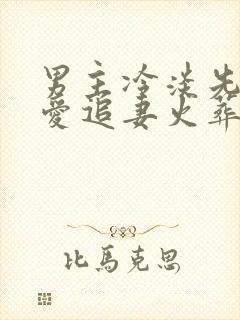 男主冷淡先
爱追妻火葬
比馬克思